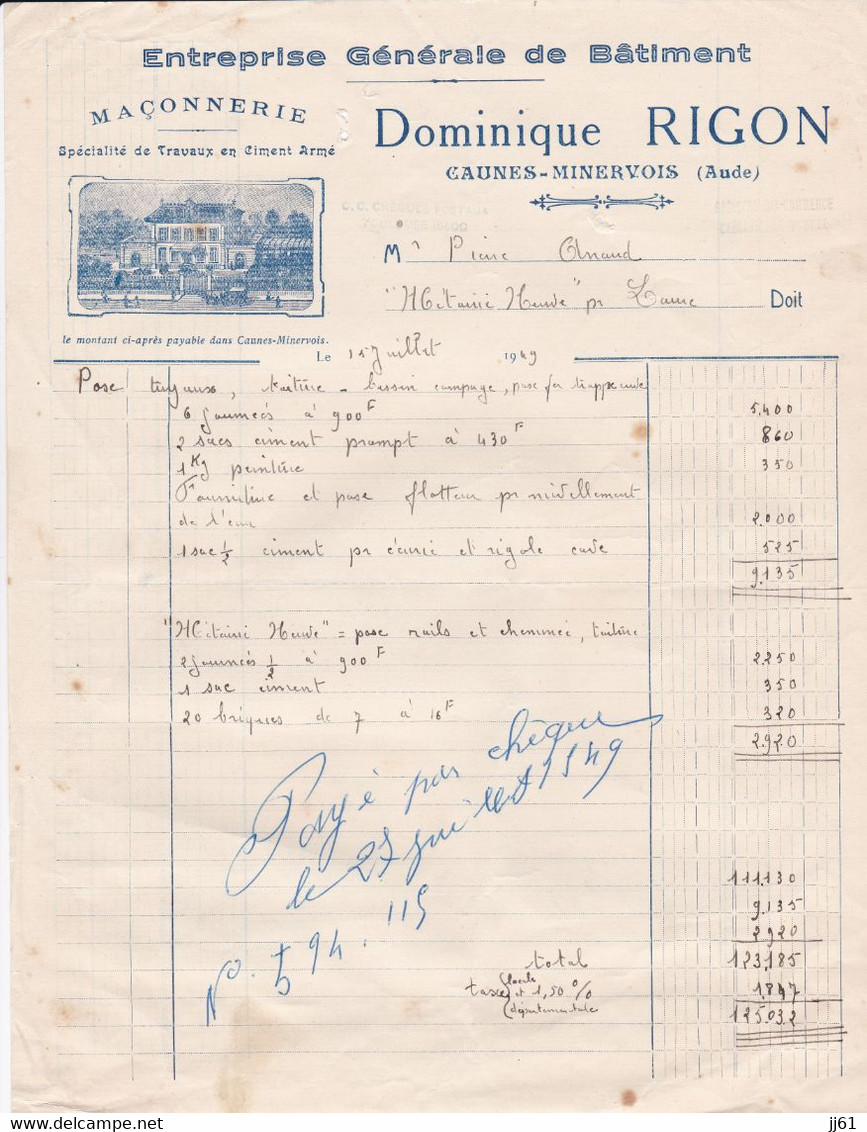 Entreprise Générale de Bâtiment
MAÇONNERIE
Spécialité de Travaux en Ciment Armé
Dominique RIGON
CAUNES-MINERVOIS (Aude)
C. C. CHÈQUES POSTAUX
Mr Pierre
"Métairie" pr Doit
le montant ci-après payable dans Caunes-Minervois.
Le 15 Juillet 1949
Pose tuyaux, toiture - bassin campagne, pose fer trappe cuve
6 journées à 900F 5.400
2 sacs ciment prompt à 430F 860
1 Kg peinture 350
Fourniture et pose flotteur pr nivellement
de l'eau 2.000
1 sac 1/2 ciment pr écurie et rigole cave 525
9.135
"Métairie" = pose rails et cheminée, toiture
2 journées 1/2 à 900F 2250
1 sac ciment 350
20 briques de 7 à 16F 320
2.920
Payé par chèque
le 27 juillet 1949
No. 594.115
111.130
9.135
2920
total 123,185
taxe locale et 1,50 % départementale 1.847
125.032
jj61